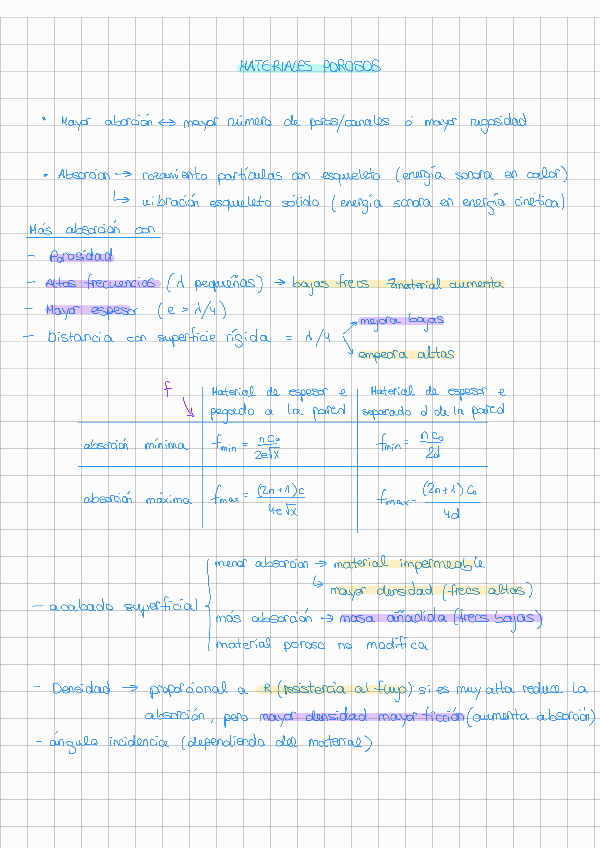 MATERIALES POROSOS
• Mayor aborción ↔ mayor número de poros/canales ó mayor rugosidad
• Absorcion → rozamiento partículas con esqueleto (energía sonora en calor)
↳ vibración esqueleto sólido (energía sonora en energía cinética)
Más absorción con
- Porosidad
- Altas frecuencias (λ pequeñas) → bajas frecs zmaterial aumenta
- Mayor espesor (e > λ/4)
- Distancia con superficie rígida = λ/4
mejora bajas
empeora altas
f
Material de espesor e pegado a la pared
Material de espesor e separado d de la pared
absorción mínima fmin = nC₀/2e√x fmin = nC₀/2d
absorción máxima fmax = (2n+1)c/4e√x fmax = (2n+1)C₀/4d
- acabado superficial
menor absorcion → material impermeable
↳ mayor densidad (frecs altas)
más absorción → masa añadida (frecs bajas)
material poroso no modifica
- Densidad → proporcional a R (resistencia al flujo): si es muy alta reduce la
absorción, pero mayor densidad mayor fricción (aumenta absorción)
- ángulo incidencia (dependiendo del material)